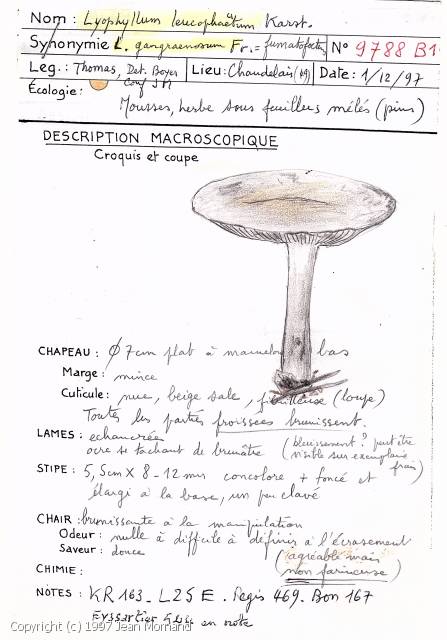 Nom : Lyophyllum leucophaetum Karst.
Synonymie L. gangraenosum Fr. = fumatofoetens N° 9788 B1
Lég. : Thomas, Det. Boyer Lieu : Chaudelais (49) Date : 1/12/97
Conf JM
Écologie :
Mousses, herbe sous feuillus mêlés (pins)
DESCRIPTION MACROSCOPIQUE
Croquis et coupe
CHAPEAU : Ø 7cm plat à mamelon bas
Marge : mince
Cuticule : nue, beige sale, (loupe)
Toutes les parties froissées brunissent.
LAMES : echancrées
ocre se tachant de brunâtre (bleuissement ? peut être
visible sur exemplaire
frais)
STIPE : 5,5cm X 8-12 mm concolore + foncé et
élargi à la base, un peu clavé
CHAIR : brunissante à la manipulation
Odeur : nulle à difficile à définir à l'écrasement
Saveur : douce (agréable mais
non farineuse)
CHIMIE :
NOTES : KR 163 - L25 E . Regis 469 . Bon 167
Eyssartier en note
Copyright (c) 1997 Jean Mornand